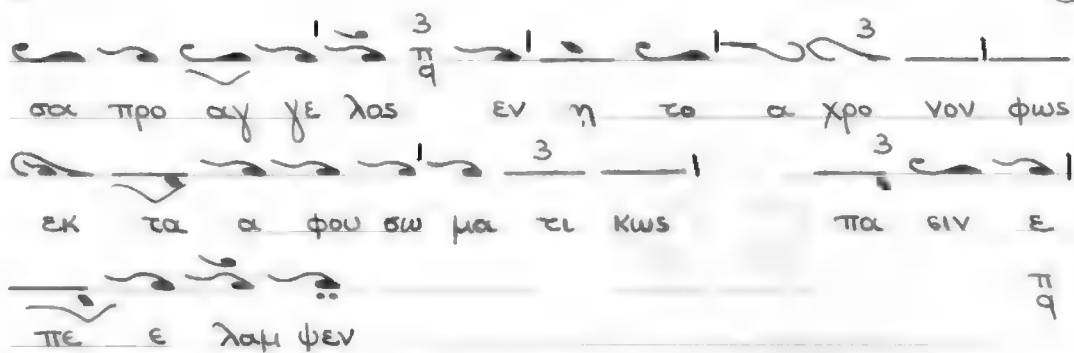 3 π q 3
σα προ αγ γε λος εν η το α χρο νον φως
3 3
εκ τα α φου σω μα τι κως πα σιν ε
π q
πε ε λαμ ψεν